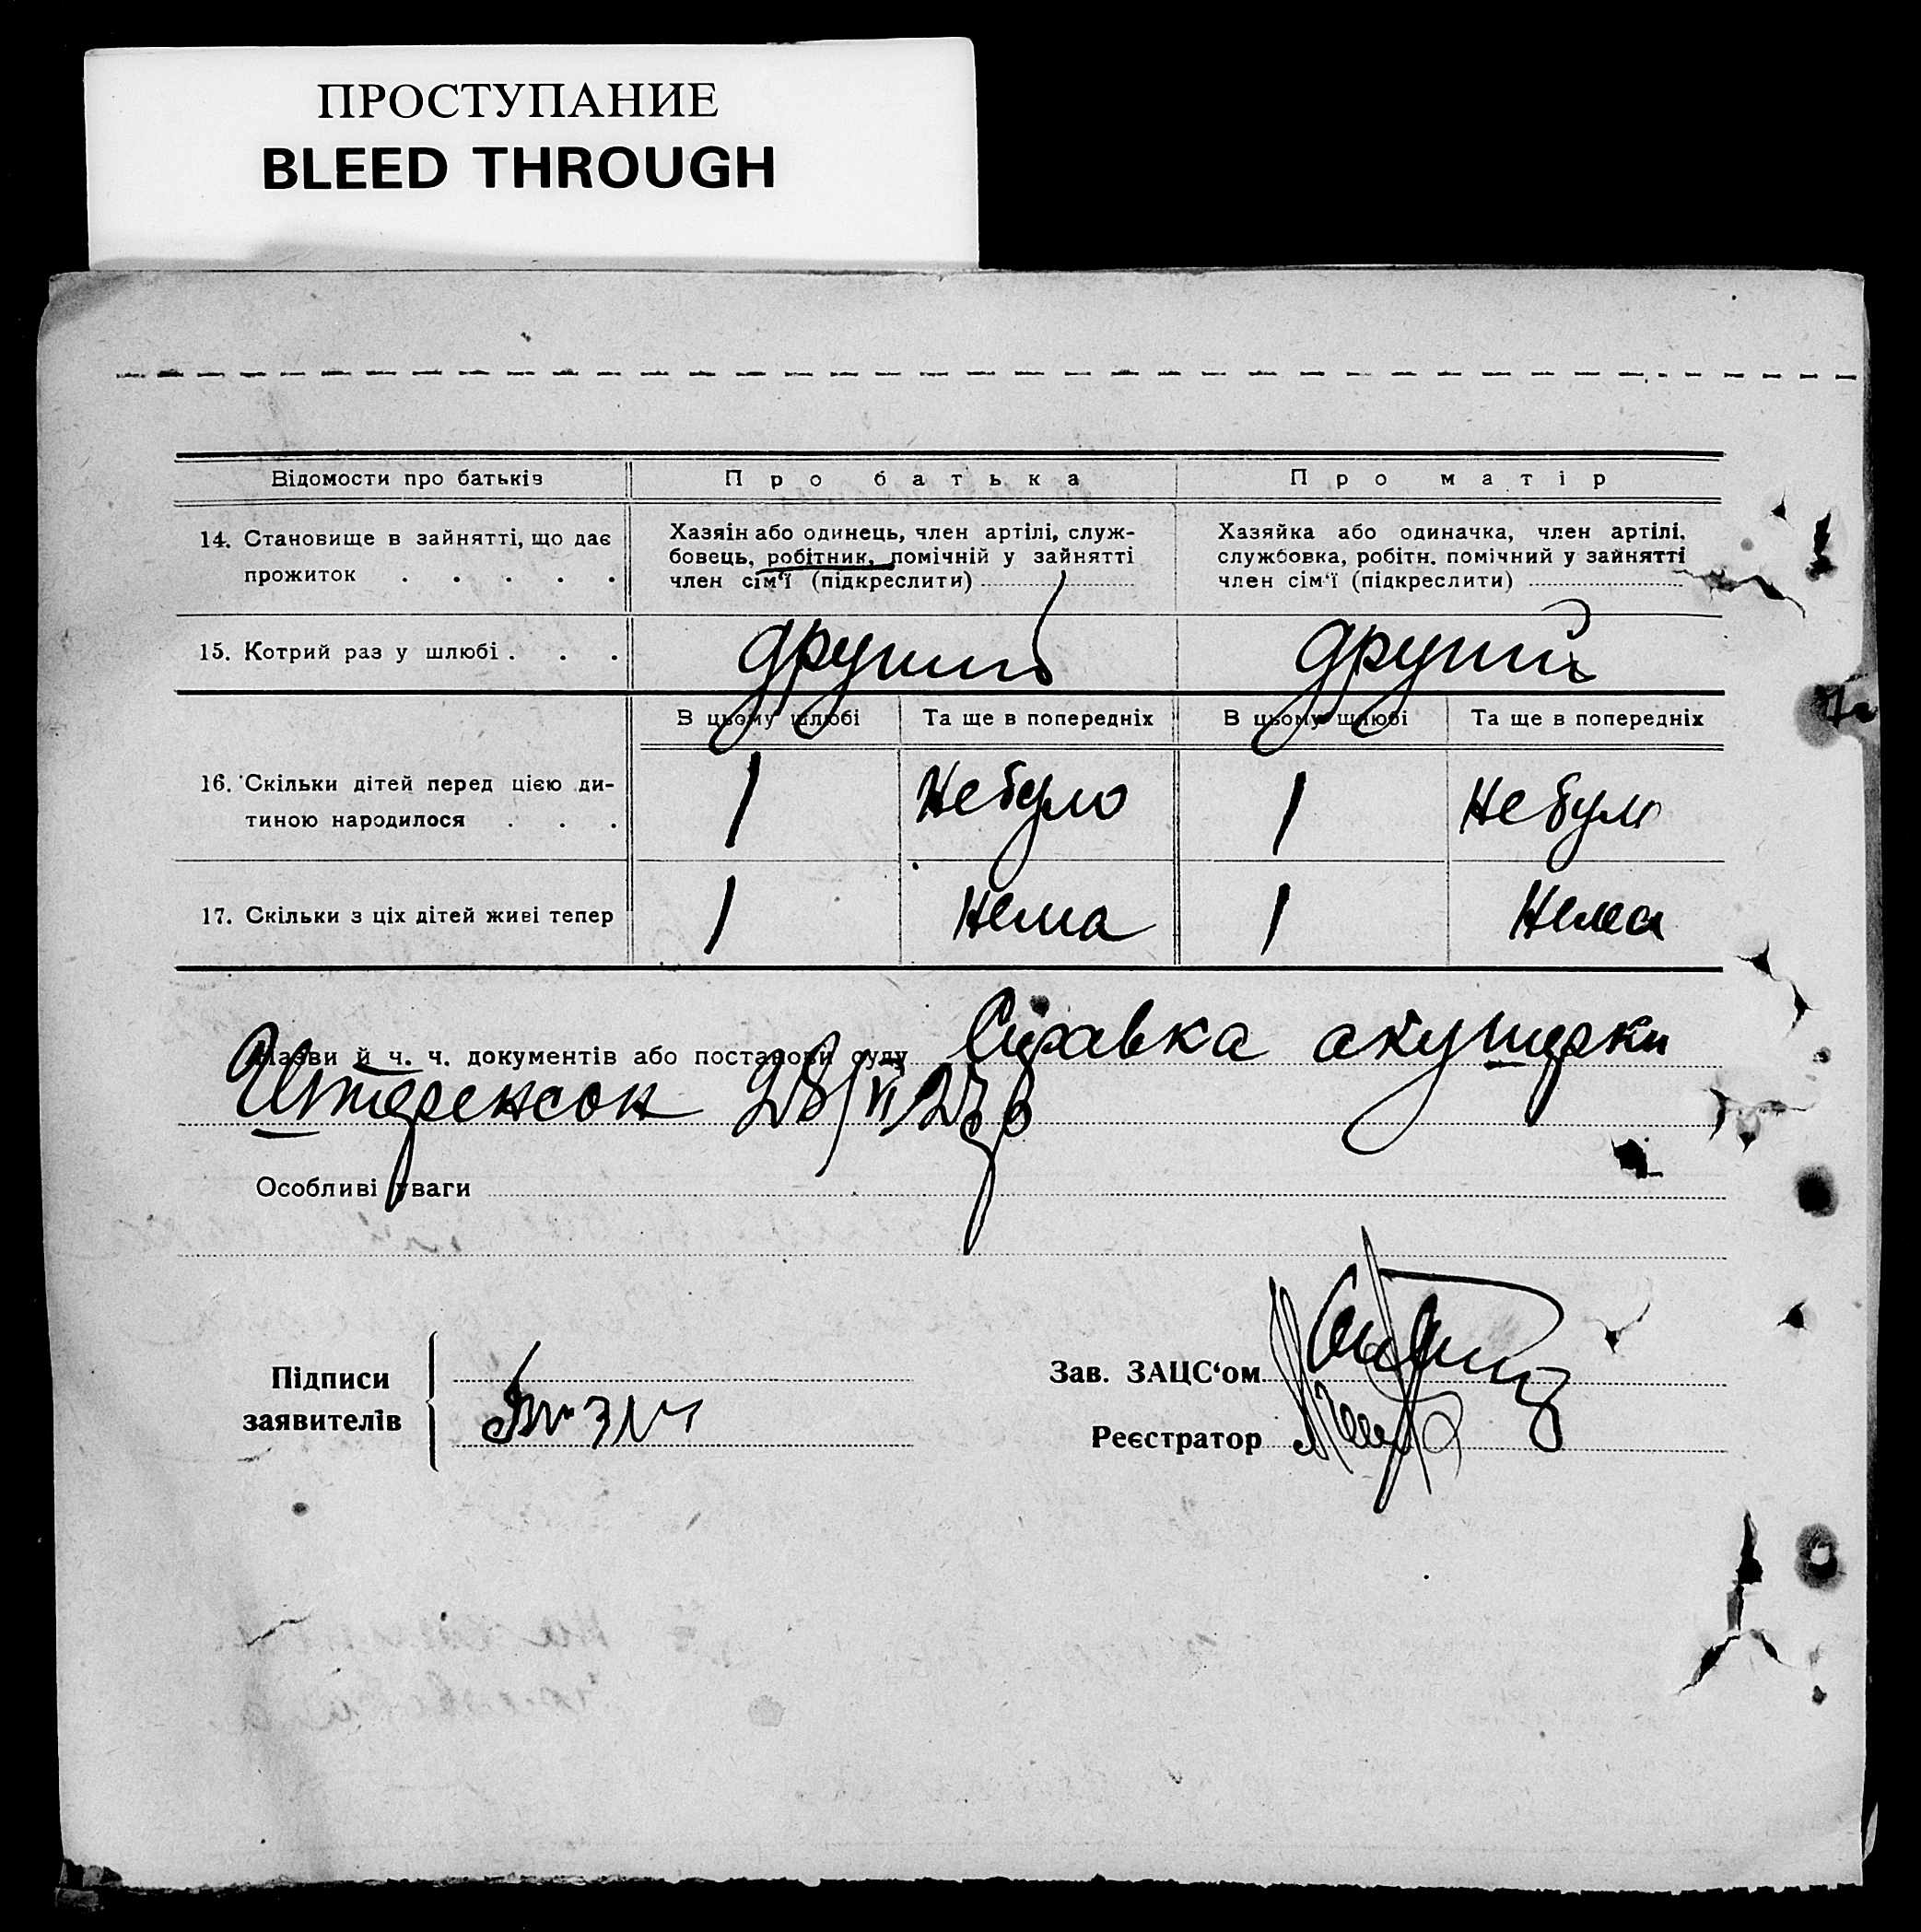 ПРОСТУПАНИЕ
BLEED THROUGH
Відомости про батьків Про батька Про матір
14. Становище в зайнятті, що дає прожиток . . . . .
Хазяін або одинець, член артілі, служ-
бовець, робітник, помічній у зайнятті
член сім'ї (підкреслити)
Хазяйка або одиначка, член артілі,
службовка, робітн. помічний у зайнятті
член сім'ї (підкреслити)
15. Котрий раз у шлюбі . . . другий другий
В цьому шлюбі Та ще в попередніх В цьому шлюбі Та ще в попередніх
16. Скільки дітей перед цією ди-
тиною народилося . . .
1 Небуло 1 Небуло
17. Скільки з ціх дітей живі тепер 1 Нема 1 Нема
Назви й ч. ч. документів або постанови суду Справка акушерки
28/VI 27 р
Особливі уваги
Підписи
заявителів
Зав. ЗАЦС'ом
Реєстратор